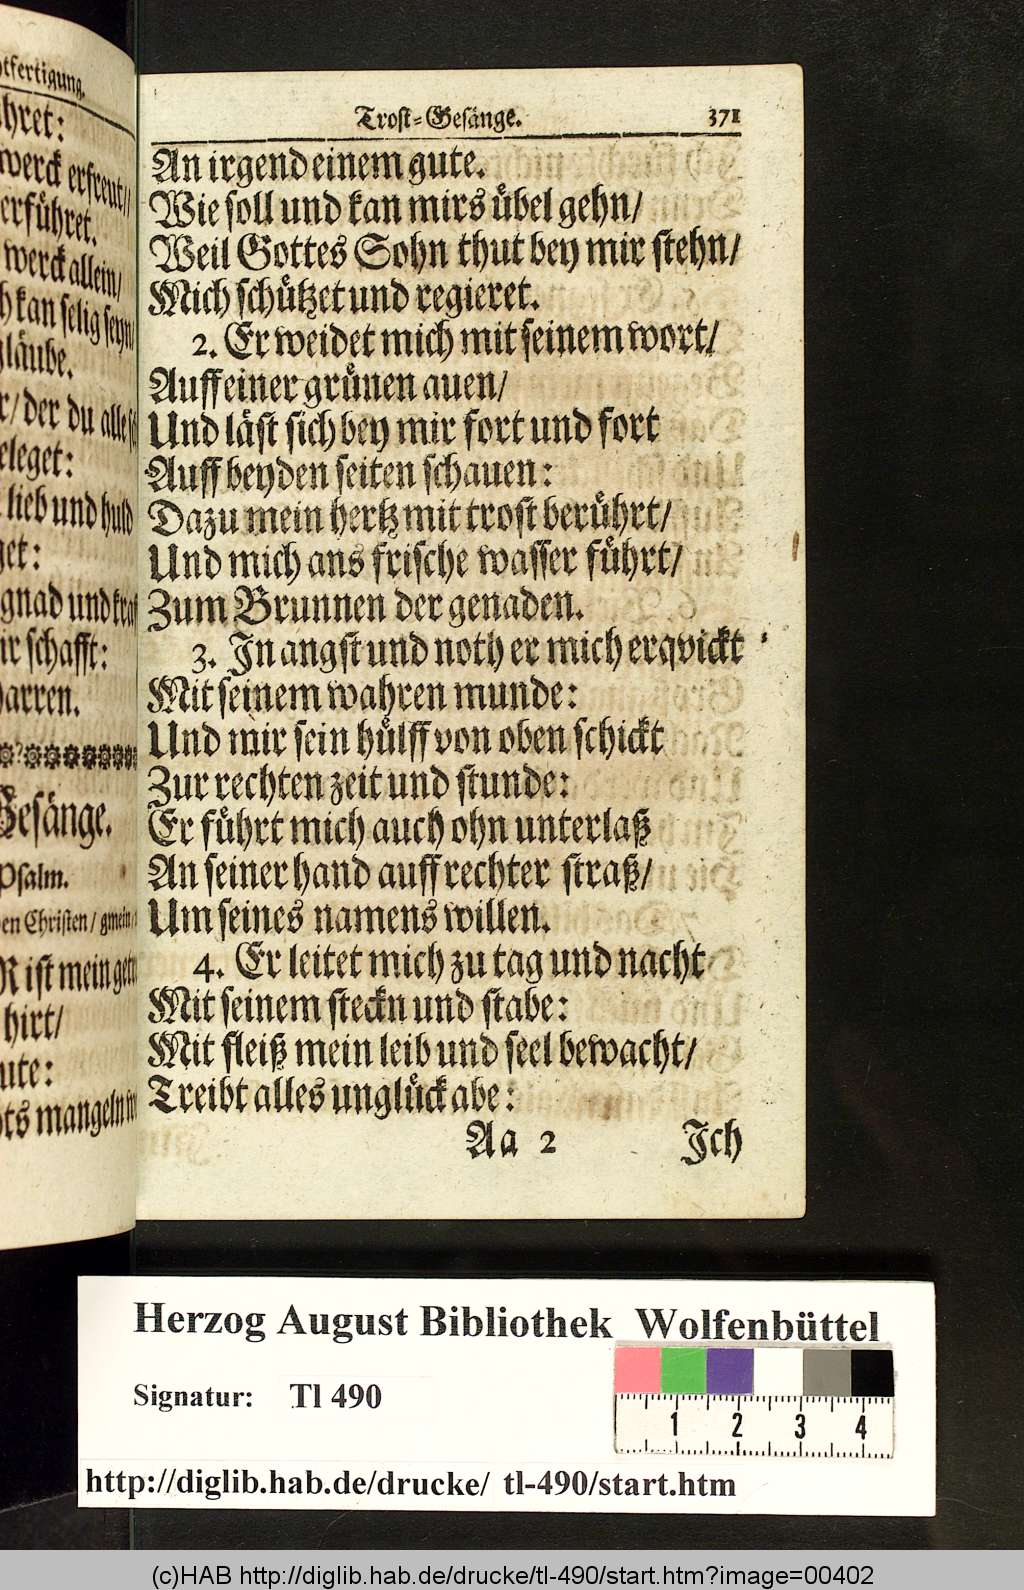 Trost-Gesänge. 371
An irgend einem gute.
Wie soll und kan mirs übel gehn/
Weil Gottes Sohn thut bey mir stehn/
Mich schützet und regieret.
2. Er weidet mich mit seinem wort/
Auff einer grünen auen/
Und läst sich bey mir fort und fort
Auff beyden seiten schauen:
Dazu mein hertz mit trost berührt/
Und mich ans frische wasser führt/
Zum Brunnen der genaden.
3. In angst und noth er mich erqvickt
Mit seinem wahren munde:
Und mir sein hülff von oben schickt
Zur rechten zeit und stunde:
Er führt mich auch ohn unterlaß
An seiner hand auff rechter straß/
Um seines namens willen.
4. Er leitet mich zu tag und nacht
Mit seinem steckn und stabe:
Mit fleiß mein leib und seel bewacht/
Treibt alles unglück abe:
Aa 2 Ich
werck erfreut/
werck allein/
kan selig seyn/
der du alle
lieb und huld
gnad und
schafft:
Gesänge.
Psalm.
Christen/
ist mein
hirt/
mangeln
Herzog August Bibliothek Wolfenbüttel
Signatur: Tl 490
1 2 3 4
http://diglib.hab.de/drucke/ tl-490/start.htm
(c)HAB http://diglib.hab.de/drucke/tl-490/start.htm?image=00402